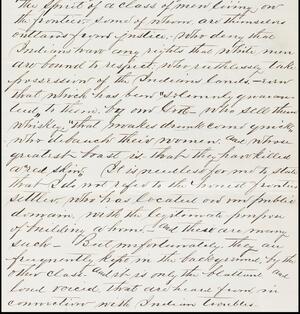 the spirit of a class of men living on
the frontier, some of whom are themselves
outlaws from justice, who deny that
Indians have any rights that white men
are bound to respect, who ruthlessly take
possession of the Indians lands - even
that which has been "solemnly guaran-
teed" to them by our Govt - who sell them
whiskey "that makes drunk comy quick"
who debauch their women, and whose
greatest boast is that they have killed
a red skin. It is needless for me to state
that I do not refer to the honest frontier
settler who has located on our public
domain, with the legitimate purpose
of building a home - and these are many
such - But unfortunately they are
frequently kept in the background by the
other class - and it is only the blatant and
loud voiced, that are heard from in
connection with Indian troubles.